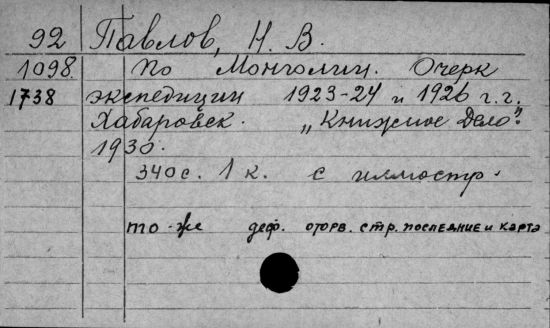 92 Павлов, Н. В.
1098. По Монголии. Очерк
1738 экспедиции 1923-24 и 1926 г.г.
Хабаровск. "Книжное Дело".
1930.
340 с. 1 к. с иллюстр.
то-же деф. оторв. стр. последние и карта